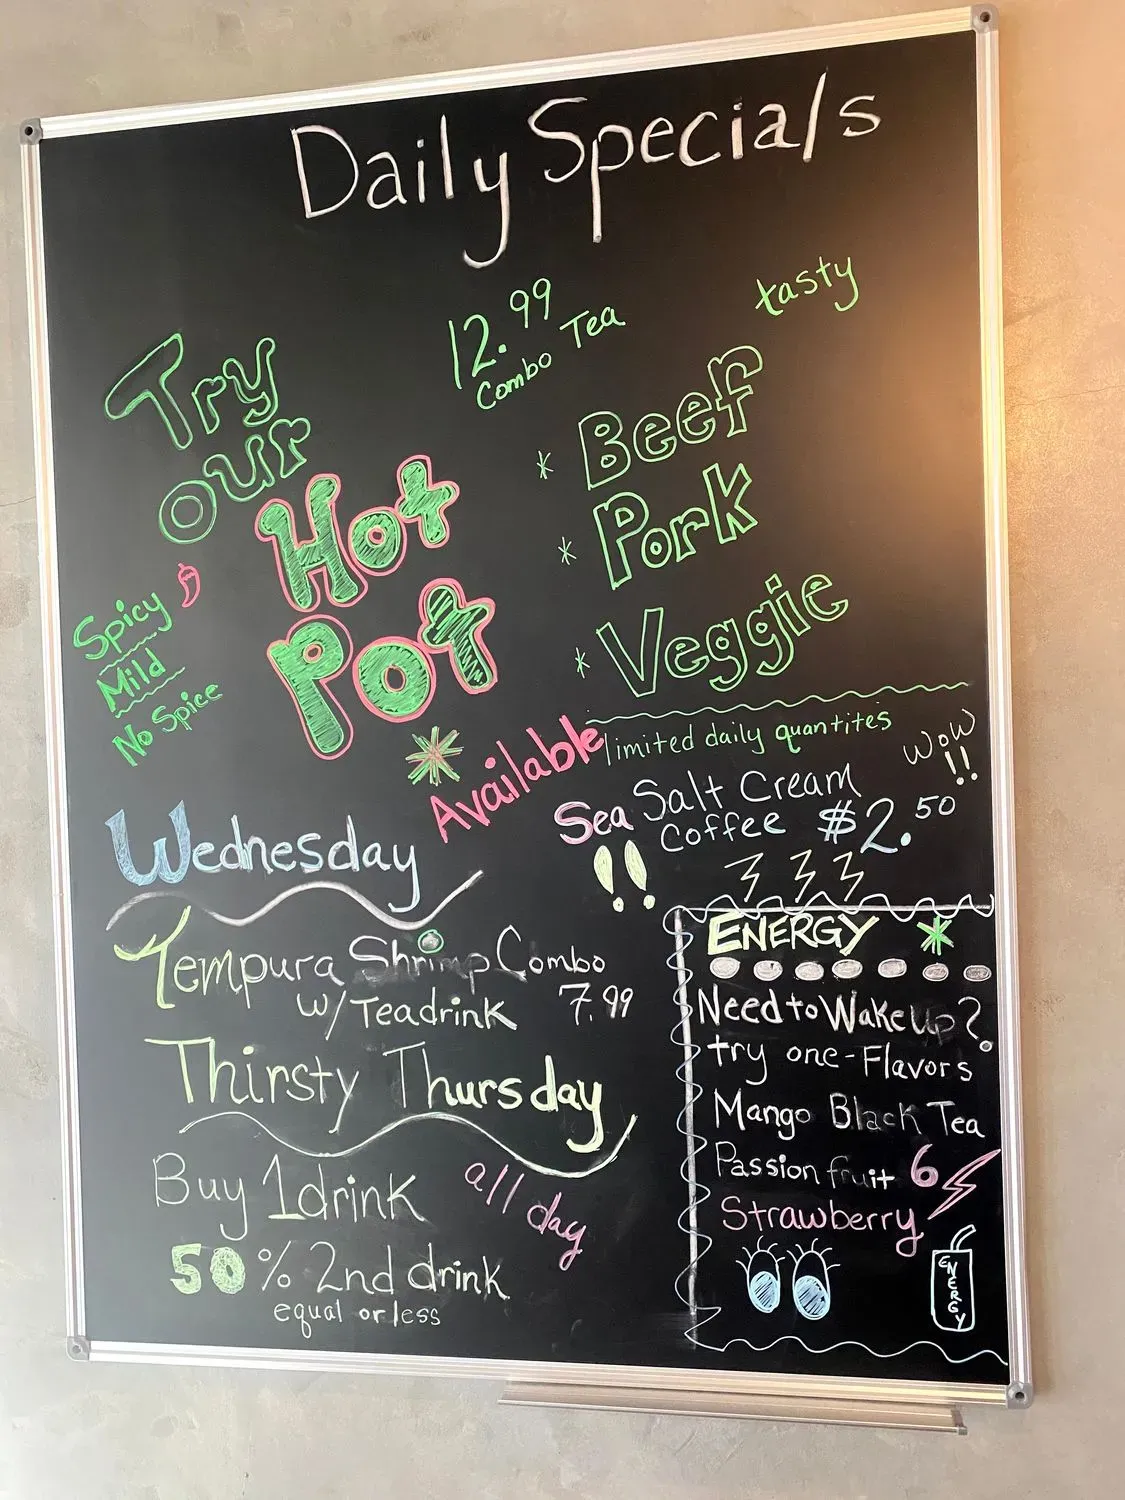 Daily Specials
12.99
Combo Tea
tasty
Try
our
Hot
Pot
Spicy
Mild
No Spice
* Beef
* Pork
* Veggie
* Available
limited daily quantites
Wow
!!
Sea Salt Cream
Coffee $2.50
!!
Wednesday
Tempura Shrimp Combo
w/ Teadrink 7.99
Thirsty Thursday
Buy 1 drink
all day
50% 2nd drink
equal or less
ENERGY *
Need to Wake Up?
try one-Flavors
Mango Black Tea
Passion fruit 6
Strawberry
ENERGY